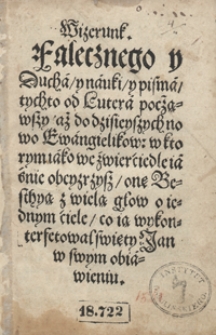 Wizerunk.
Falecznego y
Ducha/ y nauki/ y pisma/
tychto od Lutera począ-
wszy/ aż do dzisieyszych no
wo Ewangielikow: w kto
rym iáko we źwierciedle iá
śnie obeyzrzysz/ onę Be-
sthyą z wielą głow o ie-
dnym ciele/ co ią wykon-
terfetował święty Jan
w swym obiá-
wieniu.
INSTYTUT
18.722